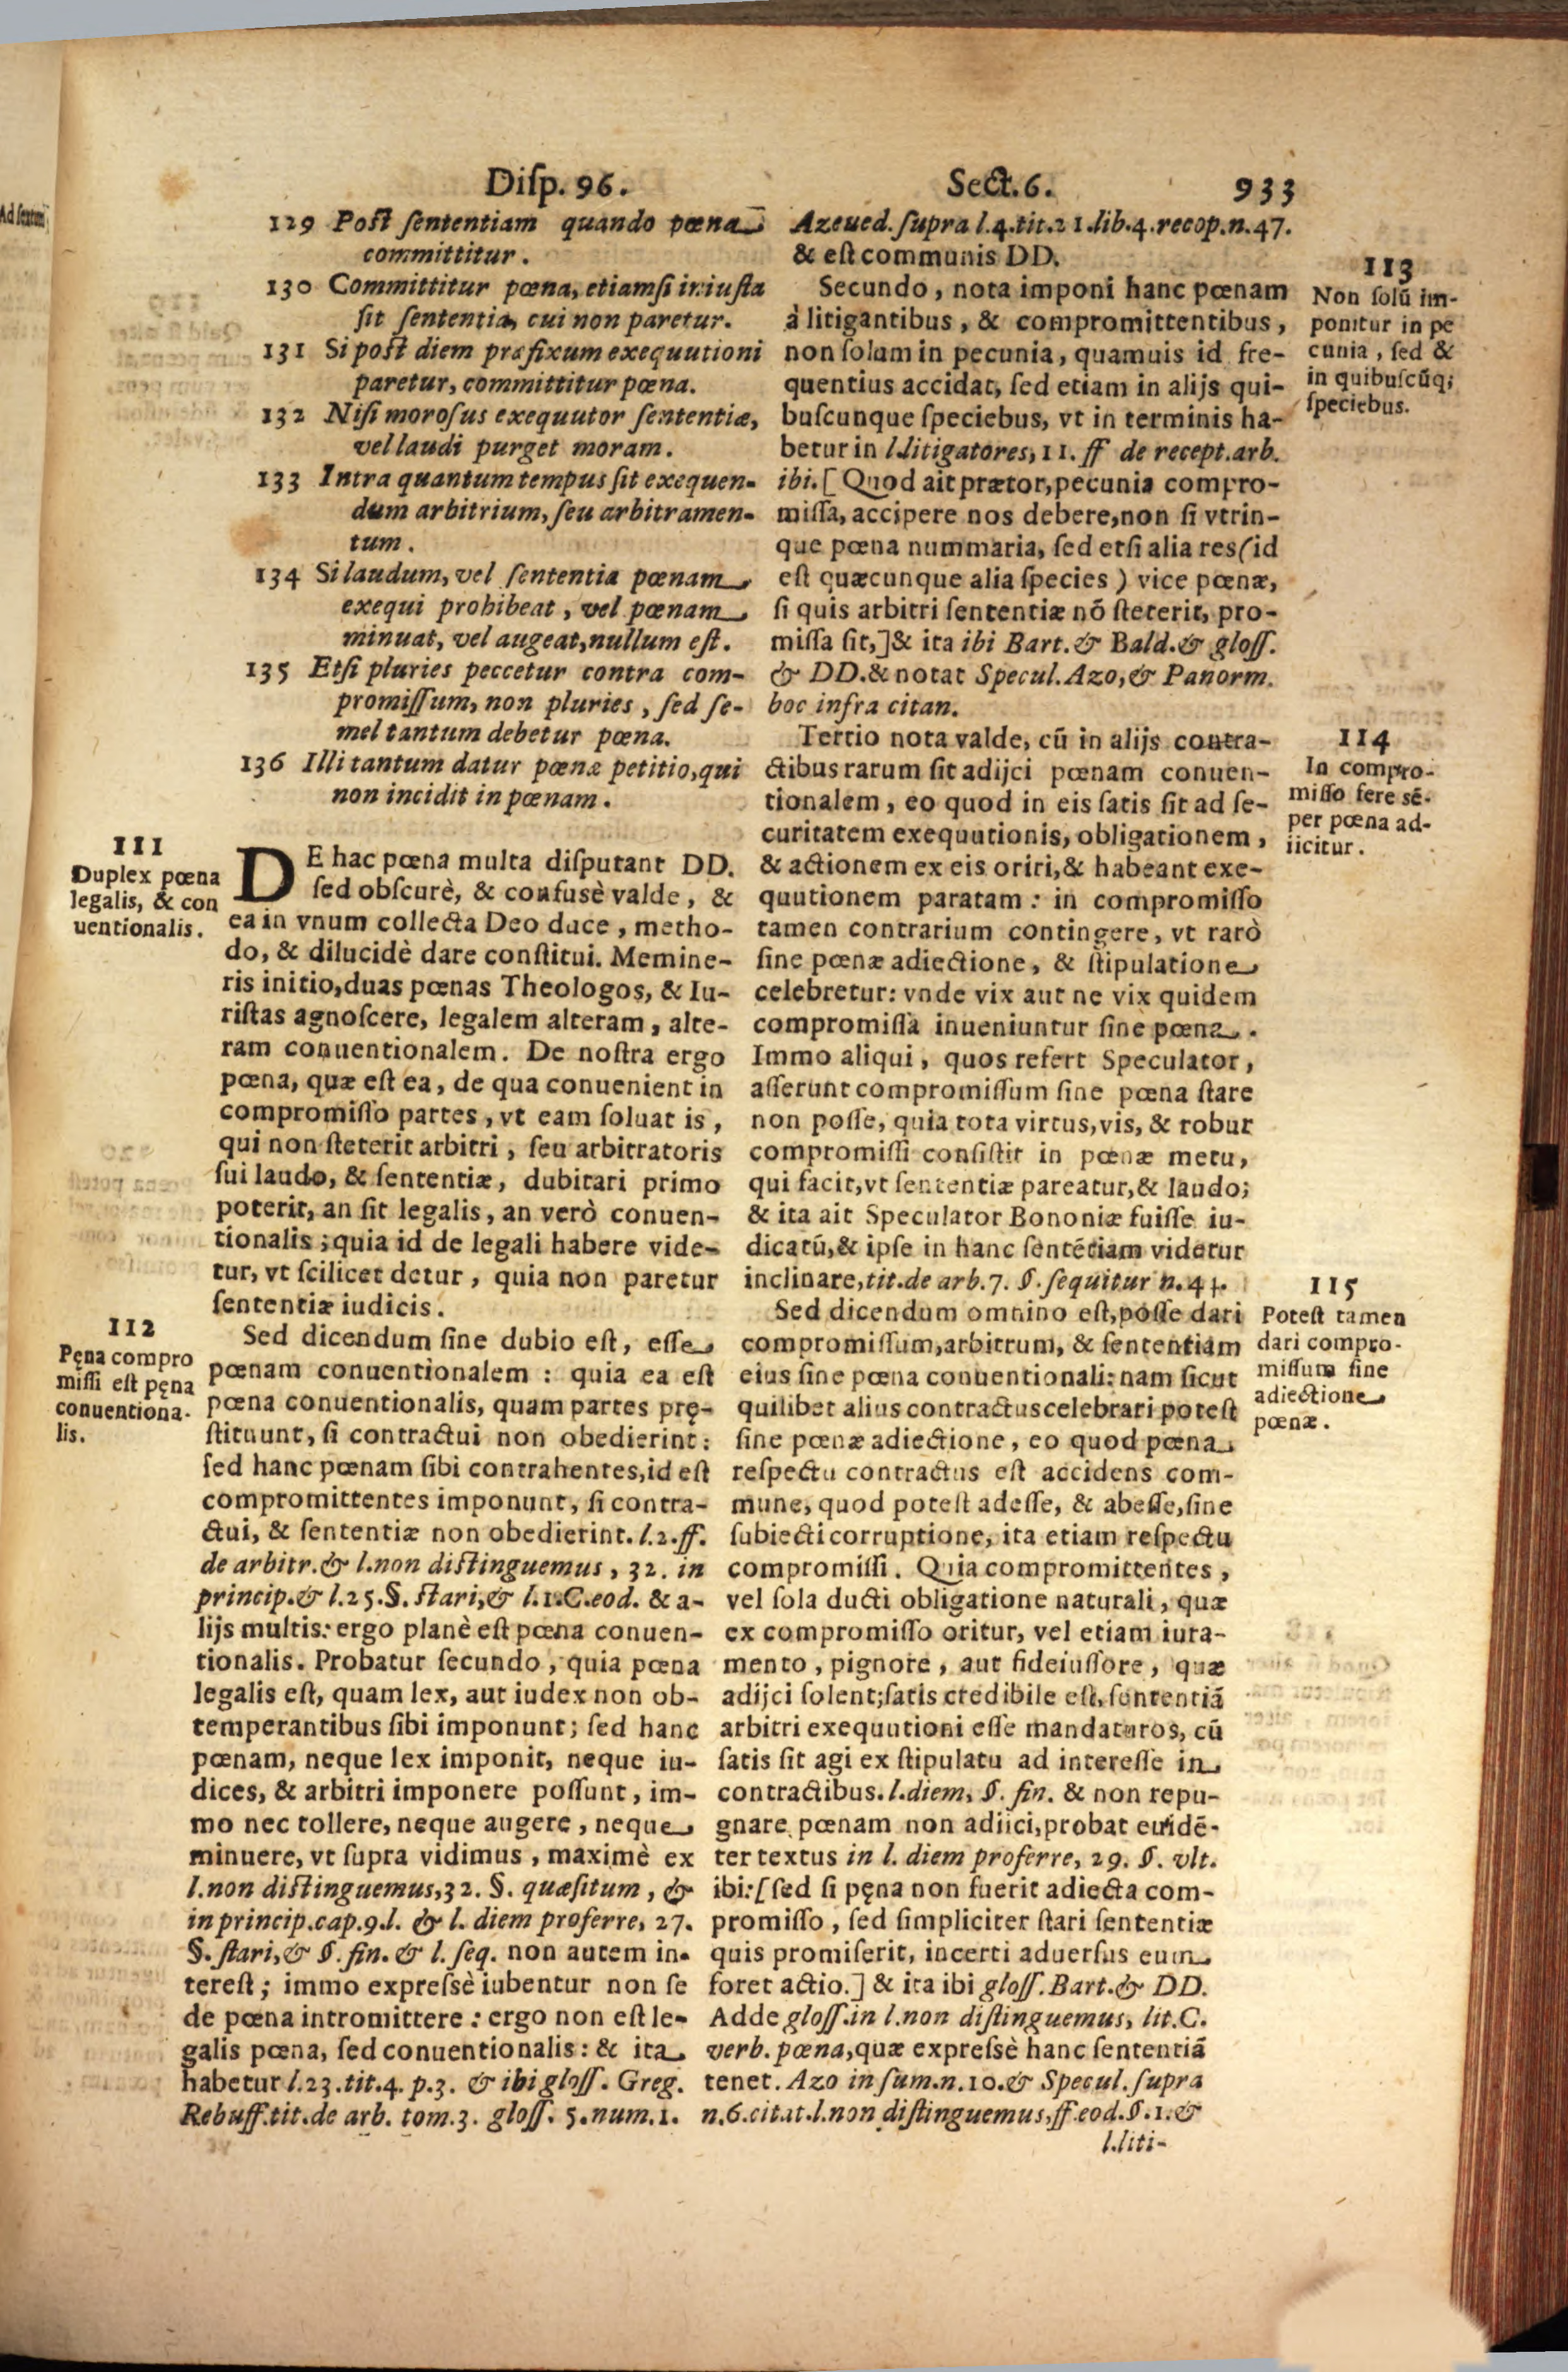 Disp. 96. Sect. 6. 933
129 Post sententiam quando pœna
committitur.
130 Committitur pœna, etiamsi iniusta
sit sententia, cui non paretur.
131 Si post diem præfixum exequutioni
paretur, committitur pœna.
132 Nisi morosus exequutor sententiæ,
vel laudi purget moram.
133 Intra quantum tempus sit exequen-
dum arbitrium, seu arbitramen-
tum.
134 Si laudum, vel sententia pœnam
exequi prohibeat, vel pœnam
minuat, vel augeat, nullum est.
135 Etsi pluries peccetur contra com-
promissum, non pluries, sed se-
mel tantum debetur pœna.
136 Illi tantum datur pœnæ petitio, qui
non incidit in pœnam.
111
Duplex pœna
legalis, & con
uentionalis.
DE hac pœna multa disputant DD.
sed obscurè, & confusè valde, &
ea in vnum collecta Deo duce, metho-
do, & dilucidè dare constitui. Memine-
ris initio, duas pœnas Theologos, & Iu-
ristas agnoscere, legalem alteram, alte-
ram conuentionalem. De nostra ergo
pœna, quæ est ea, de qua conuenient in
compromisso partes, vt eam soluat is,
qui non steterit arbitri, seu arbitratoris
sui laudo, & sententiæ, dubitari primo
poterit, an sit legalis, an verò conuen-
tionalis; quia id de legali habere vide-
tur, vt scilicet detur, quia non paretur
sententiæ iudicis.
112
Pęna compro
missi est pęna
conuentiona-
lis.
Sed dicendum sine dubio est, esse
pœnam conuentionalem: quia ea est
pœna conuentionalis, quam partes prę-
stituunt, si contractui non obedierint:
sed hanc pœnam sibi contrahentes, id est
compromittentes imponunt, si contra-
ctui, & sententiæ non obedierint. l.2.ff.
de arbitr. & l.non distinguemus, 32. in
princip. & l.25.§. stari, & l.1.C.eod. & a-
lijs multis: ergo planè est pœna conuen-
tionalis. Probatur secundo, quia pœna
legalis est, quam lex, aut iudex non ob-
temperantibus sibi imponunt; sed hanc
pœnam, neque lex imponit, neque iu-
dices, & arbitri imponere possunt, im-
mo nec tollere, neque augere, neque
minuere, vt supra vidimus, maximè ex
l.non distinguemus, 32. §. quæsitum, &
in princip.cap.9.l. & l. diem proferre, 27.
§. stari, & §. fin. & l. seq. non autem in-
terest; immo expressè iubentur non se
de pœna intromittere: ergo non est le-
galis pœna, sed conuentionalis: & ita
habetur l.23.tit.4. p.3. & ibi gloss. Greg.
Rebuff.tit.de arb. tom.3. gloss. 5.num.1.
Azeued. supra l.4.tit.21.lib.4.recop.n.47.
& est communis DD.
113
Non solũ im-
ponitur in pe
cunia, sed &
in quibuscũq;
speciebus.
Secundo, nota imponi hanc pœnam
à litigantibus, & compromittentibus,
non solum in pecunia, quamuis id fre-
quentius accidat, sed etiam in alijs qui-
buscunque speciebus, vt in terminis ha-
betur in l.litigatores, 11. ff de recept.arb.
ibi. [Quod ait prætor, pecunia compro-
missa, accipere nos debere, non si vtrin-
que pœna nummaria, sed etsi alia res (id
est quæcunque alia species) vice pœnæ,
si quis arbitri sententiæ nõ steterit, pro-
missa sit,] & ita ibi Bart. & Bald. & gloss.
& DD. & notat Specul. Azo, & Panorm.
hoc infra citan.
114
In compro-
misso fere sẽ-
per pœna ad-
iicitur.
Tertio nota valde, cũ in alijs contra-
ctibus rarum sit adijci pœnam conuen-
tionalem, eo quod in eis satis sit ad se-
curitatem exequutionis, obligationem,
& actionem ex eis oriri, & habeant exe-
quutionem paratam: in compromisso
tamen contrarium contingere, vt rarò
sine pœnæ adiectione, & stipulatione
celebretur: vnde vix aut ne vix quidem
compromissa inueniuntur sine pœna.
Immo aliqui, quos refert Speculator,
asserunt compromissum sine pœna stare
non posse, quia tota virtus, vis, & robur
compromissi consistit in pœnæ metu,
qui facit, vt sententiæ pareatur, & laudo;
& ita ait Speculator Bononiæ fuisse iu-
dicatũ, & ipse in hanc sentẽtiam videtur
inclinare, tit.de arb.7. §. sequitur n.
115
Potest tamen
dari compro-
missum sine
adiectione
pœnæ.
Sed dicendum omnino est, posse dari
compromissum, arbitrum, & sententiam
eius sine pœna conuentionali: nam sicut
quilibet alius contractus celebrari potest
sine pœnæ adiectione, eo quod pœna
respectu contractus est accidens com-
mune, quod potest adesse, & abesse, sine
subiecti corruptione, ita etiam respectu
compromissi. Quia compromittentes,
vel sola ducti obligatione naturali, quæ
ex compromisso oritur, vel etiam iura-
mento, pignore, aut fideiussore, quæ
adijci solent; satis credibile est, sententiã
arbitri exequutioni esse mandaturos, cũ
satis sit agi ex stipulatu ad interesse in
contractibus. l.diem, §. fin. & non repu-
gnare pœnam non adiici, probat euidẽ-
ter textus in l. diem proferre, 29. §. vlt.
ibi: [sed si pęna non fuerit adiecta com-
promisso, sed simpliciter stari sententiæ
quis promiserit, incerti aduersus eum
foret actio.] & ita ibi gloss. Bart. & DD.
Adde gloss. in l.non distinguemus, lit.C.
verb. pœna, quæ expressè hanc sententiã
tenet. Azo in sum.n.10. & Specul. supra
n.6.citat.l.non distinguemus, ff.eod.§.1. &
l.liti-